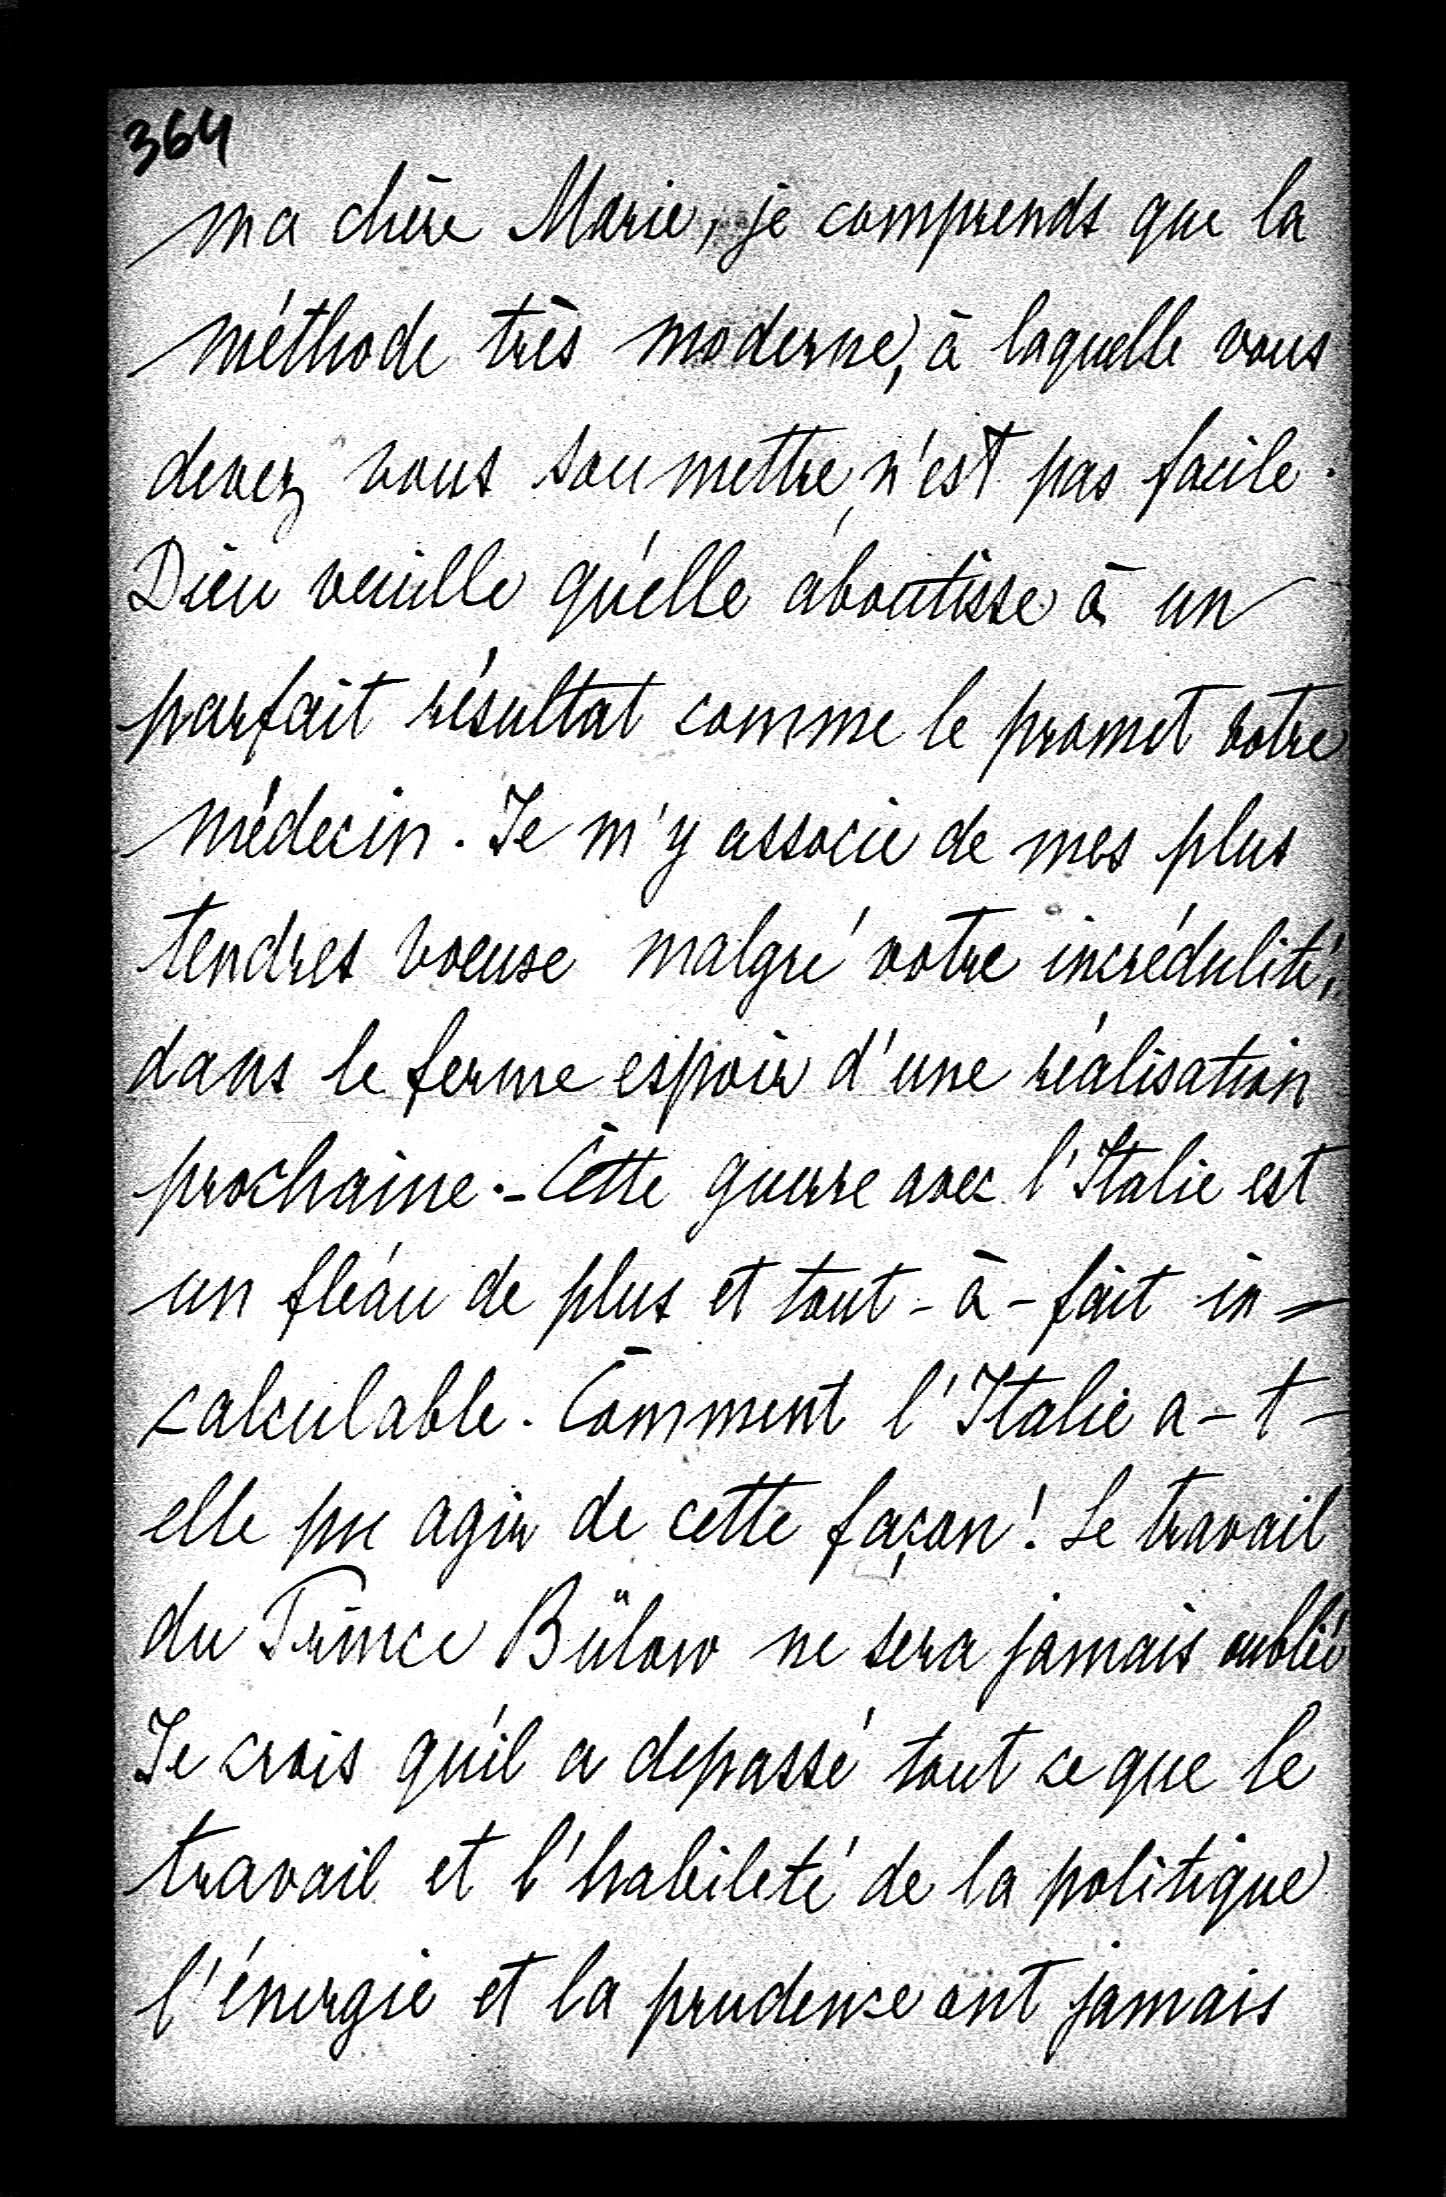 364
ma chère Marie, je comprends que la
méthode très moderne, à laquelle vous
devez vous soumettre, n'est pas facile.
Dieu veuille qu'elle aboutisse à un
parfait résultat comme le promet votre
médecin. Je m'y associe de mes plus
tendres voeuse malgré votre incrédulité,
dans le ferme espoir d'une réalisation
prochaine. - Cette guerre avec l'Italie est
un fléau de plus et tout-à-fait in-
calculable. Comment l'Italie a-t-
elle pu agir de cette façon! Le travail
du Prince Bülow ne sera jamais oublié
Je crois qu'il a depassé tout ce que le
travail et l'habileté de la politique
l'énergie et la prudence ont jamais